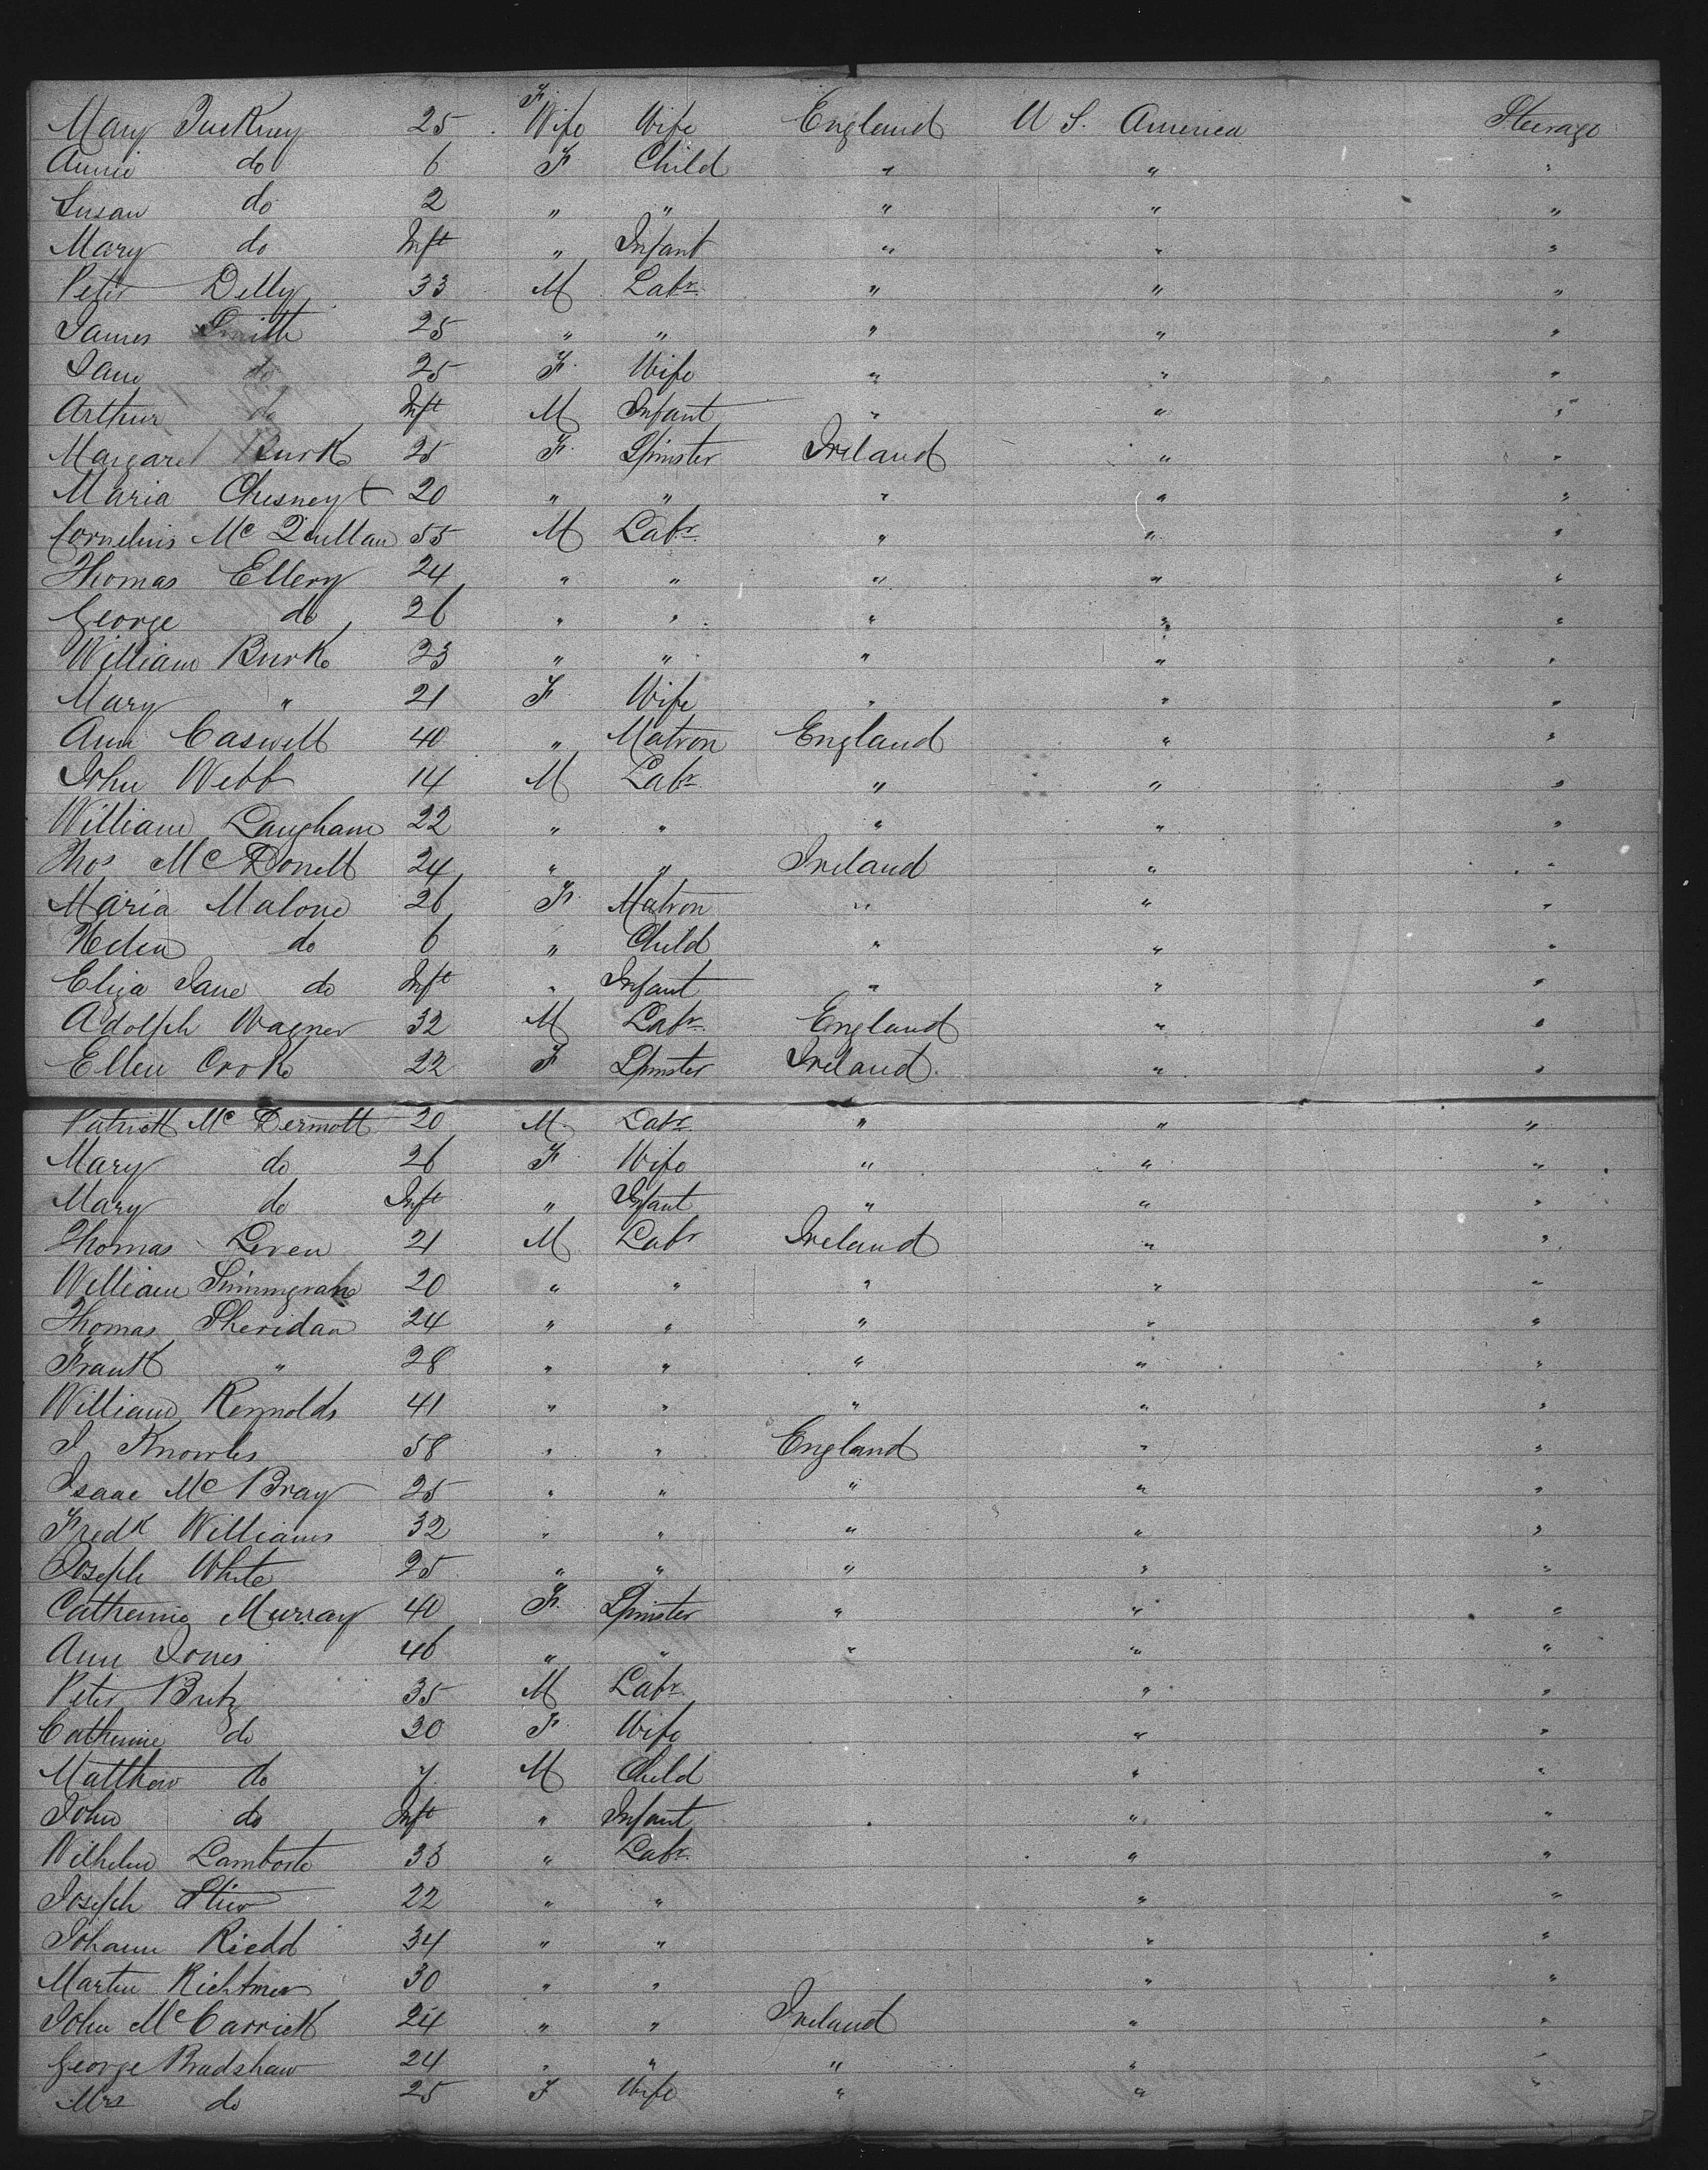 Mary Tuckney 25 F Wife Wife England U S. America Steerage
Annie do 6 F Child " " "
Susan do 2 " " " " "
Mary do Inft " Infant " " "
Peter Delly 33 M Labr " " "
James Smith 25 " " " " "
Jane do 25 F. Wife " " "
Arthur do Inft M Infant " " "
Margaret Burk 25 F. Spinster Ireland " "
Maria Chesney 20 " " " " "
Cornelius Mc Quillan 55 M Labr " " "
Thomas Ellery 24 " " " " "
George do 26 " " " " "
William Burke 23 " " " " "
Mary " 21 F Wife " " "
Ann Caswell 40 " Matron England " "
John Webb 14 M Labr " " "
William Langham 22 " " " " "
Thos McDonell 24 " " Ireland " "
Maria Malone 26 F. Matron " " "
do 6 " Child " " "
Eliza Jane do Inft " Infant " " "
Adolph Wagner 32 M Labr England " "
Ellen Croke 22 F Spinster Ireland " "
Patrick Mc Dermott 20 M. Labr " " "
Mary do 26 F Wife " " "
Mary do Inft " Infant " " "
Thomas Leven 21 M Labr Ireland " "
William 20 " " " " "
Thomas Sheridan 24 " " " " "
Frank " 28 " " " " "
William Reynolds 41 " " " " "
J Knowles 58 " " England " "
Isaac Mc Bray 25 " " " " "
Fredk Williams 32 " " " " "
Joseph White 25 " " " " "
Catherine Murray 40 F. Spinster " " "
Ann Jones 46 " " " " "
Peter Butz 35 M Labr " "
Catherine do 30 F. Wife " "
Matthew do 7 M Child " "
John do Inft " Infant " "
Wilhelm Lamboste 33 " Labr " "
Joseph 22 " " " "
Johann Riedd 34 " " " "
Martin Richtmer 30 " " " "
John McCarrick 24 " " Ireland " "
George Bradshaw 24 " " " " "
Mrs do 25 F Wife " " "